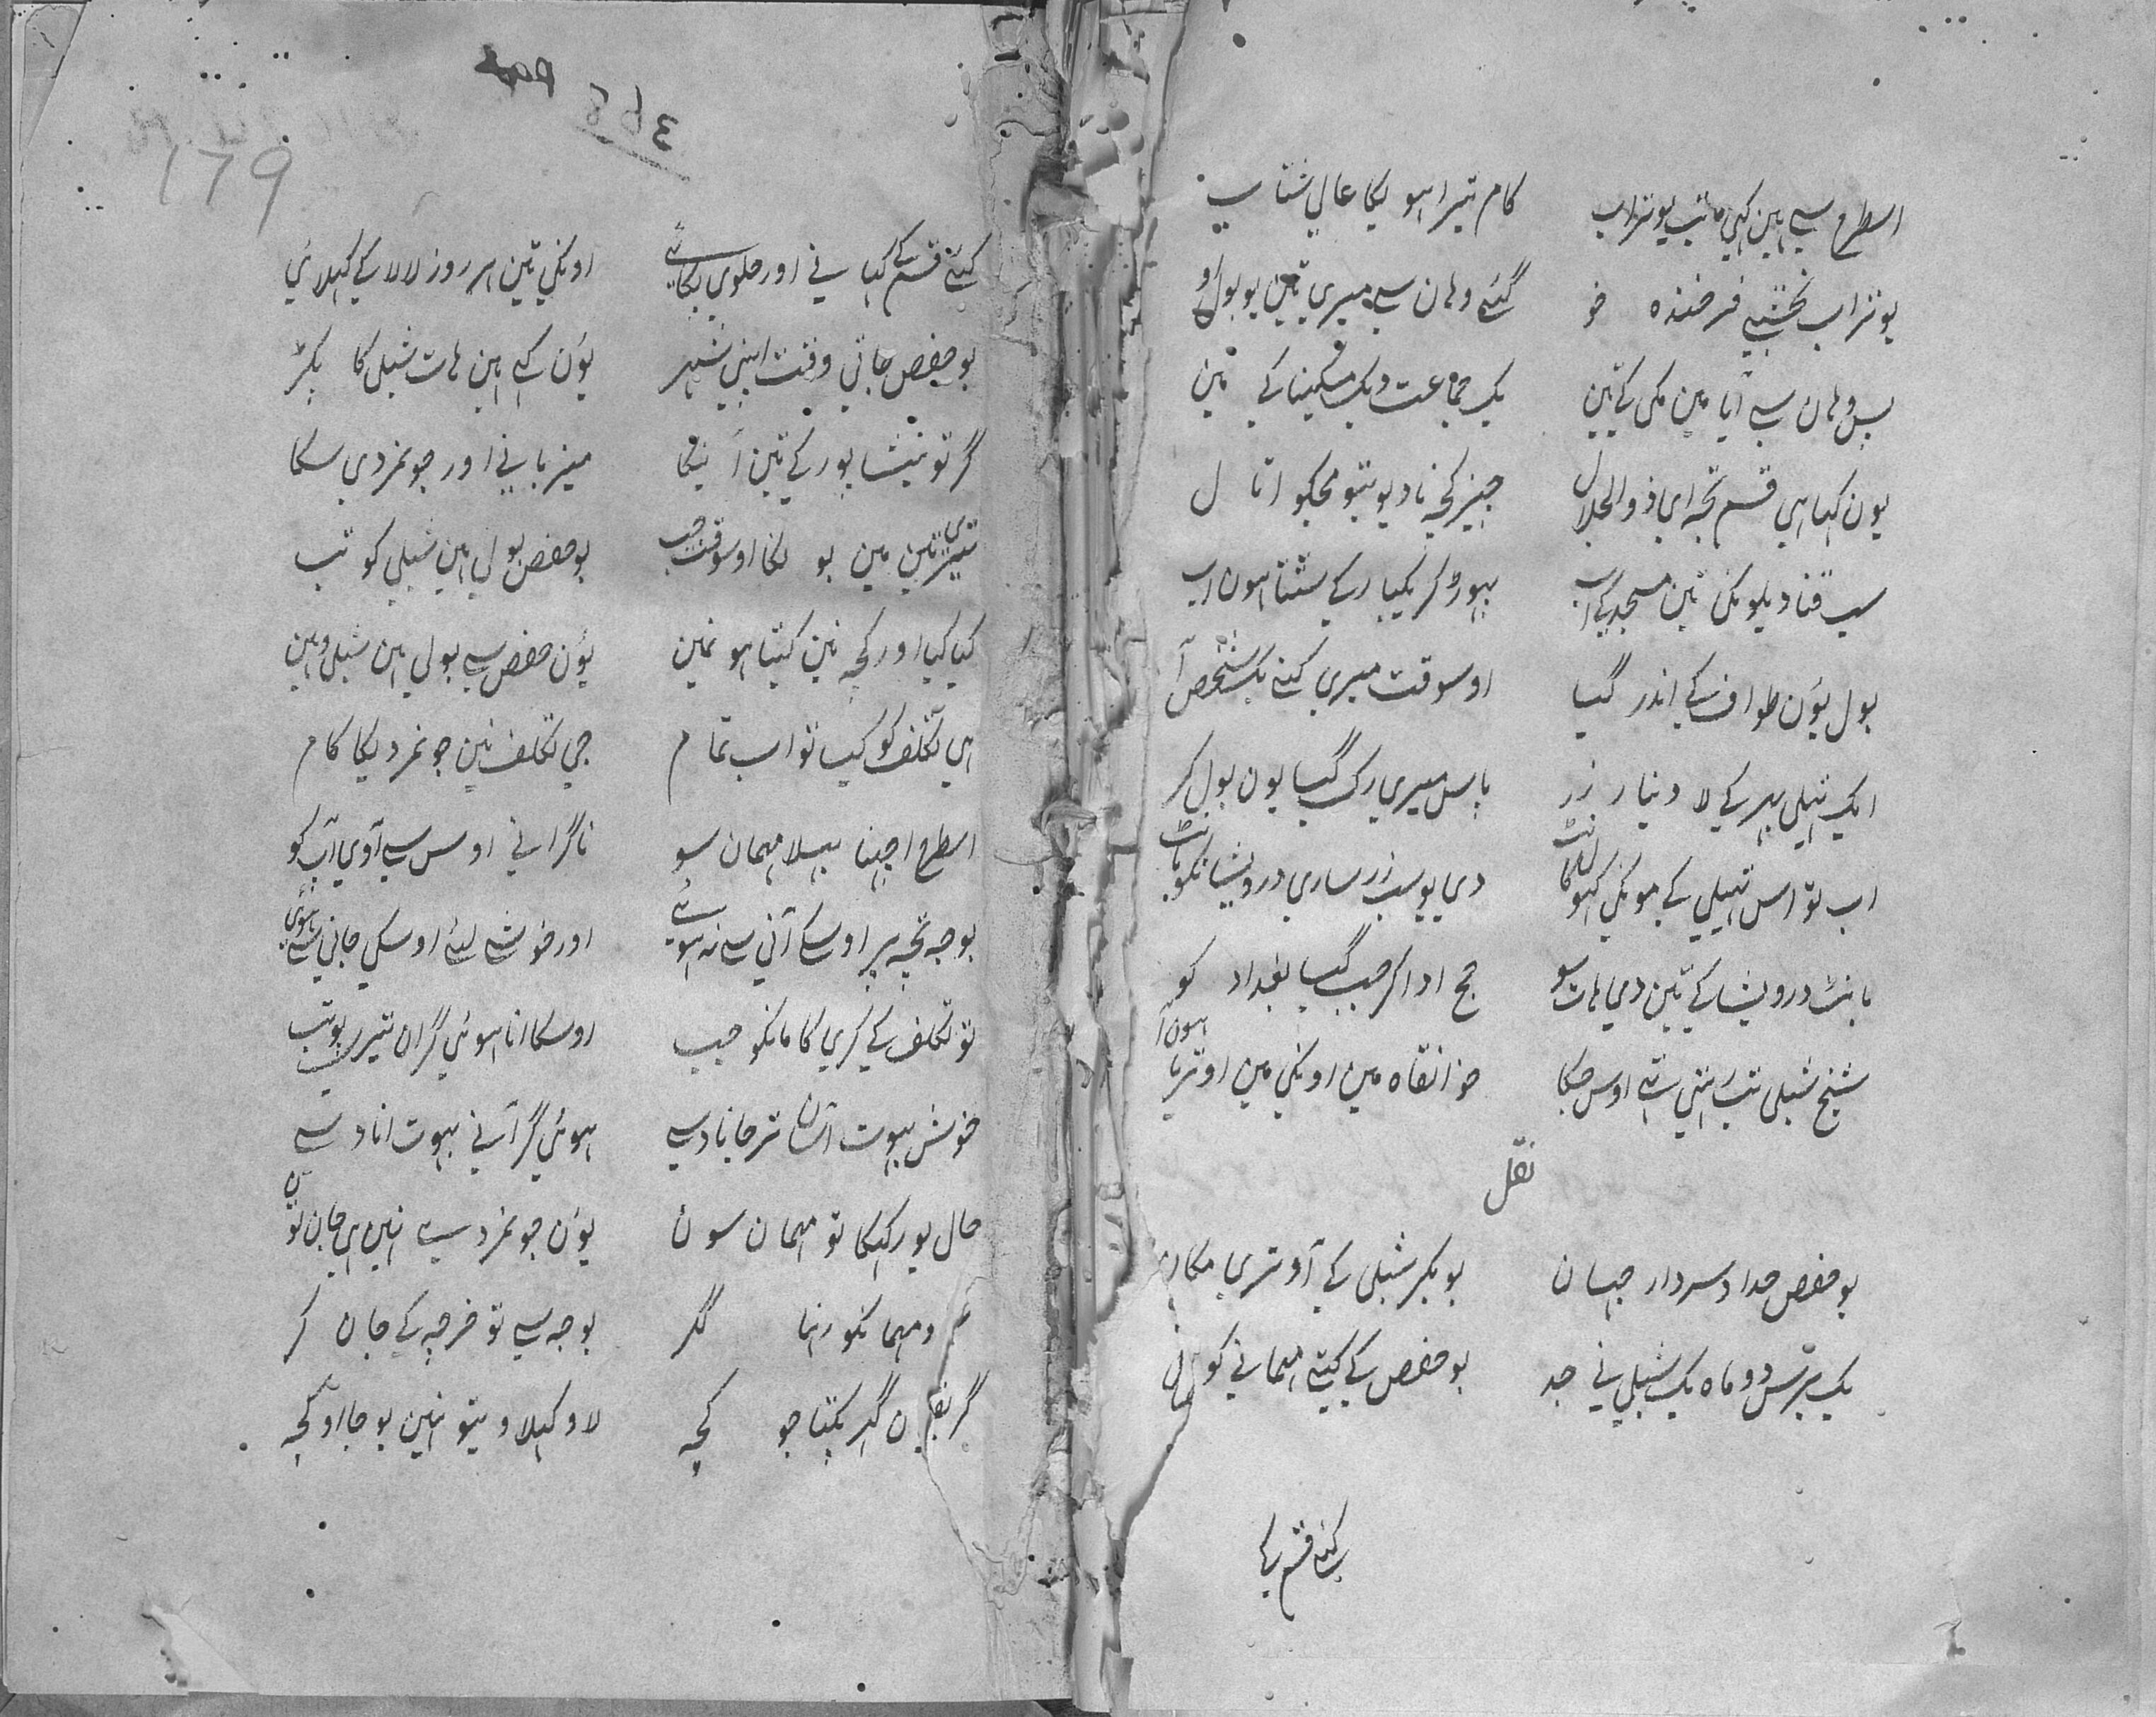 اسطرح سے ہین کہی مانب بوتراب کام تیرا ہو یگا عالی شتاب
بوتراب نخشبی فرخندہ خو گئے وہان سے میری تین یو بول او
پس وہان سے آیا مین مکی کے تین یک جماعت دیک مسکینا کے تین
یون کہا ہی قسم تجہ ای ذوالجلال چیز کچہ نا دیو یتو مجکو اتا ل
سب قنادیلونکی تین مسجد کے اب پہوڑ کر یکبارکے سٹتا ہون اب
بول یؤن طواف کے اندر گیا اوسوقت میری کنے یک شخص آ
ایک تہیلی بہر کے لا دینار زر پاس میری رک گیا یون بول کر
اب تو اس تہیلی کے مونکی کہو لکا دی یو سب زر ساری درویشانکو بانٹ
بانٹ درویشا کے تین دی ہات سو حج ادا کر جب گیا بغداد کو
شیخ شبلی تب اتنی تہے اوس جکا خوانقاہ مین اونکی مین اوتریا ہون آ
نقل
بو حفص حداد سردار جہان بو بکر شبلی کے آ و تری مکان
یک برس دو ماہ یک شبلی نے جد بو حفص کے کیتے مہمانے کو
کئے قسم کے
179
کئے قسم کے کہانے اور حلوی پکائے اونکی تین ہر روز لا لا کے کہلائے
بو حفص جاتی وقت اپنی شہر یؤن کہے ہین ہات شبلی کا پکڑ
گر تو نیشاپور کے تین آئیگا میزبانے اور جونمردی سکا
تیری تین مین بو لگا اوسوقت جب بو حفص بولے ہین شبلی کو تب
کیا کیا اور کچہ نین کیتا ہو نمین یؤن حفص سے بولی ہین شبلی وہین
ہی تکلف کو کیا تو اب تمام جی تکلف نین جونمردیکا کام
اسطرح اچہنا بہلا مہمان سو ناگرانے اوس سے آوی آپ کو
بوجہ تجہ پر اوسکے آنی سے نہ ہوئے اور خوشے لئے اوسکی جانی سے ہوئے
تو تکلف کے کری کا مانکو جب اوسکا انا ہوئی گران تیر پوتب
خوش بہوت آسان تر جانا دسے ہوئی گر آنے بہوت انا دسے
حال یو رکہیکا تو مہمان سون یؤن جونمرد سے نہین ہی جان تون
و مہمانکو رہنا گر بوجہ سے تو خرچہ کے جان کر
گر ن گہر یکتا جو کچہ لا و کہلا و یتو نہین بوجا او کچہ